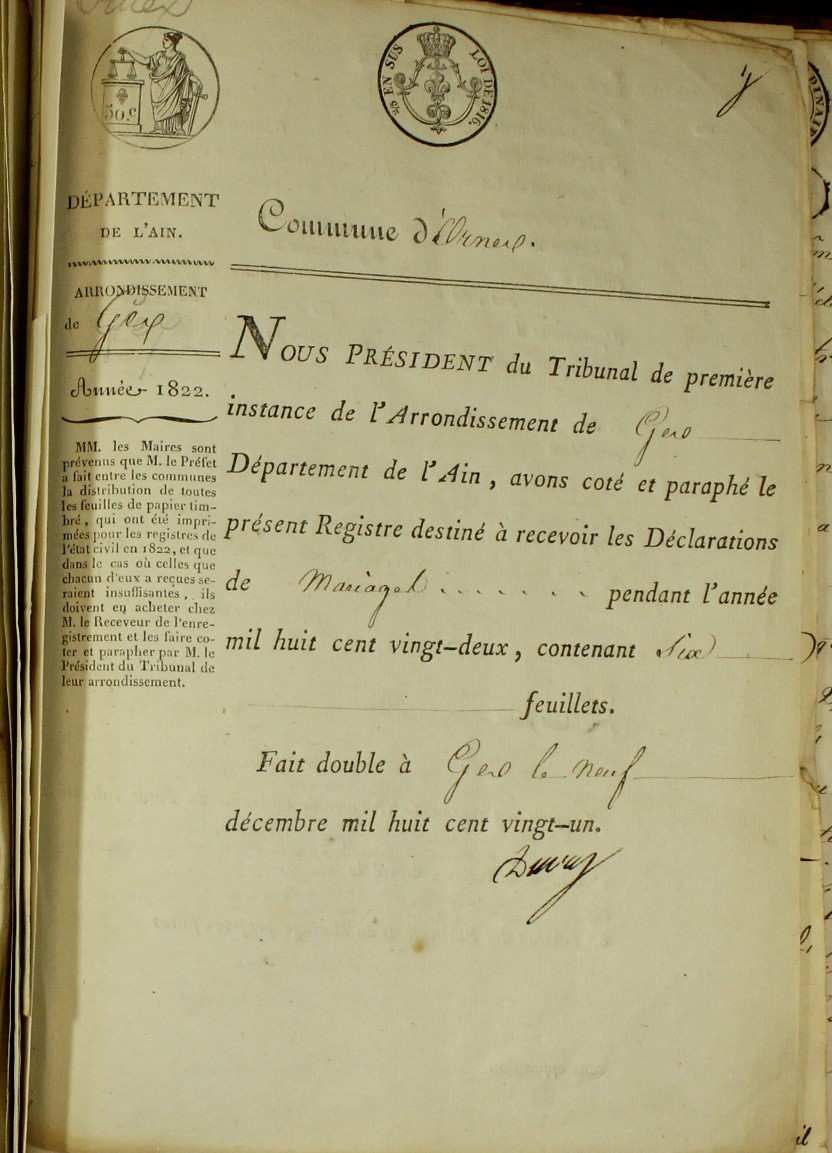 50 c
⅒ EN SUS LOI DE 1816.
DÉPARTEMENT
DE L'AIN.
ARRONDISSEMENT
de Gex
Année 1822.
MM. les Maires sont
prévenus que M. le Préfet
a fait entre les communes
la distribution de toutes
les feuilles de papier tim-
bré, qui ont été impri-
mées pour les registres de
l'état civil en 1822, et que
dans le cas où celles que
chacun d'eux a reçues se-
raient insuffisantes, ils
doivent en acheter chez
M. le Receveur de l'enre-
gistrement et les faire co-
ter et parapher par M. le
Président du Tribunal de
leur arrondissement.
Commune d'Ornex.
NOUS PRÉSIDENT du Tribunal de première
instance de l'Arrondissement de Gex
Département de l'Ain, avons coté et paraphé le
présent Registre destiné à recevoir les Déclarations
de Mariages pendant l'année
mil huit cent vingt-deux, contenant Six
feuillets.
Fait double à Gex le neuf
décembre mil huit cent vingt-un.